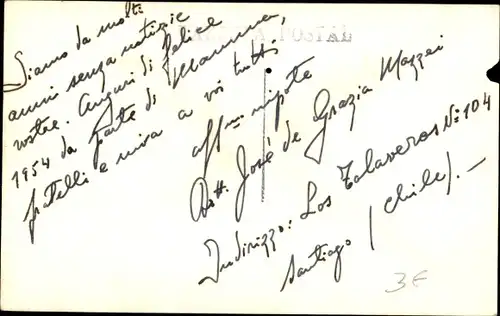 Siamo da molti
anni senza notizie
vostre. Auguri di felice
1954 da parte di Mamma,
fratelli e mia a voi tutti
aff.mo nipote
Dott. José de Grazia Mazzei
Indirizzo: Los Talaveras No 104
Santiago (Chile).—
3€